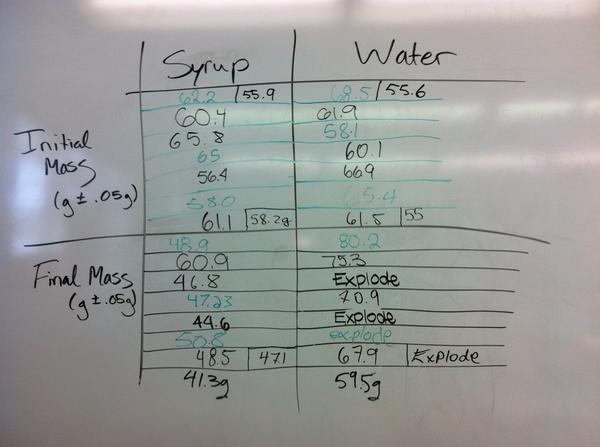 Syrup Water
62.2 | 55.9 68.5 | 55.6
60.4 61.9
65.8 58.1
Initial Mass (g ± .05g)
65 60.1
56.4 66.9
58.0 65.4
61.1 | 58.2g 61.5 | 55
48.9 80.2
60.9 75.3
Final Mass (g ± .05g)
46.8 Explode
47.23 70.9
44.6 Explode
50.8 explode
48.5 | 47.1 67.9 | Explode
41.3g 59.5g